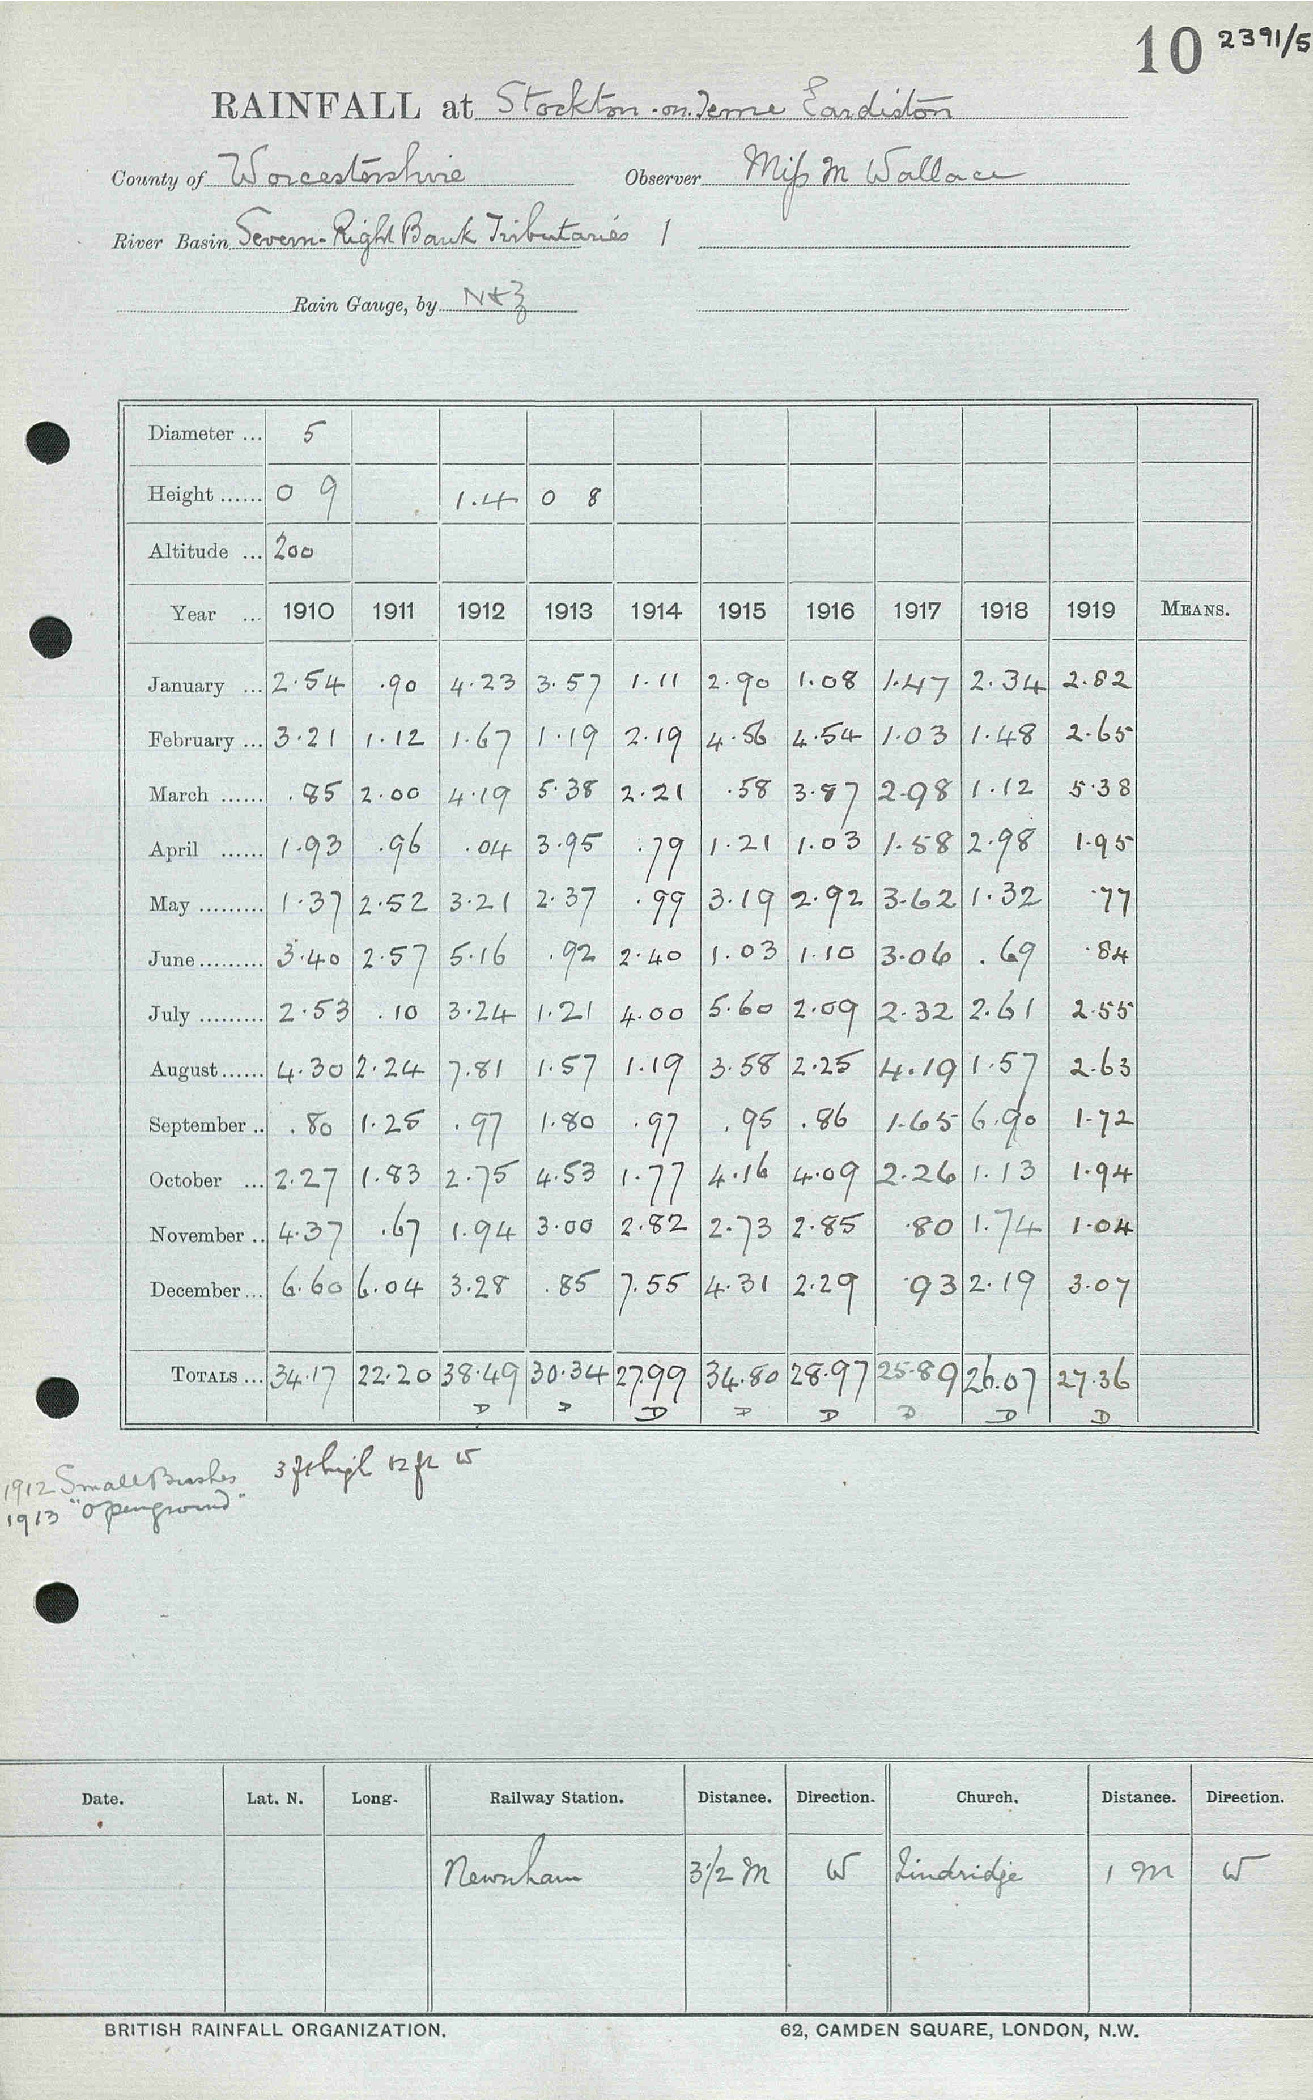 10 2391/5
RAINFALL at Stockton-on-Teme Eardiston
County of Worcestershire Observer Miss M Wallace
River Basin Severn-Right Bank Tributaries 1
Rain Gauge, by N&Z
Diameter ... 5
Height ...... 0 9 1.4 0 8
Altitude ... 200
Year ... 1910 1911 1912 1913 1914 1915 1916 1917 1918 1919 MEANS.
January ... 2.54 .90 4.23 3.57 1.11 2.90 1.08 1.47 2.34 2.82
February ... 3.21 1.12 1.67 1.19 2.19 4.56 4.54 1.03 1.48 2.65
March ...... .85 2.00 4.19 5.38 2.21 .58 3.87 2.98 1.12 5.38
April ...... 1.93 .96 .04 3.95 .79 1.21 1.03 1.58 2.98 1.95
May ......... 1.37 2.52 3.21 2.37 .99 3.19 2.92 3.62 1.32 .77
June ......... 3.40 2.57 5.16 .92 2.40 1.03 1.10 3.06 .69 .84
July ......... 2.53 .10 3.24 1.21 4.00 5.60 2.09 2.32 2.61 2.55
August ...... 4.30 2.24 7.81 1.57 1.19 3.58 2.25 4.19 1.57 2.63
September .. .80 1.25 .97 1.80 .97 .95 .86 1.65 6.90 1.72
October ... 2.27 1.83 2.75 4.53 1.77 4.16 4.09 2.26 1.13 1.94
November .. 4.37 .67 1.94 3.00 2.82 2.73 2.85 .80 1.74 1.04
December ... 6.60 6.04 3.28 .85 7.55 4.31 2.29 .93 2.19 3.07
TOTALS ... 34.17 22.20 38.49 30.34 27.99 34.80 28.97 25.89 26.07 27.36
D D D D D D D D
1912 Small Bushes 3 ft high 12 ft W
1913 "Open ground"
Date. Lat. N. Long. Railway Station. Distance. Direction. Church. Distance. Direction.
Newnham 3 1/2 M W Lindridge 1 M W
BRITISH RAINFALL ORGANIZATION. 62, CAMDEN SQUARE, LONDON, N.W.